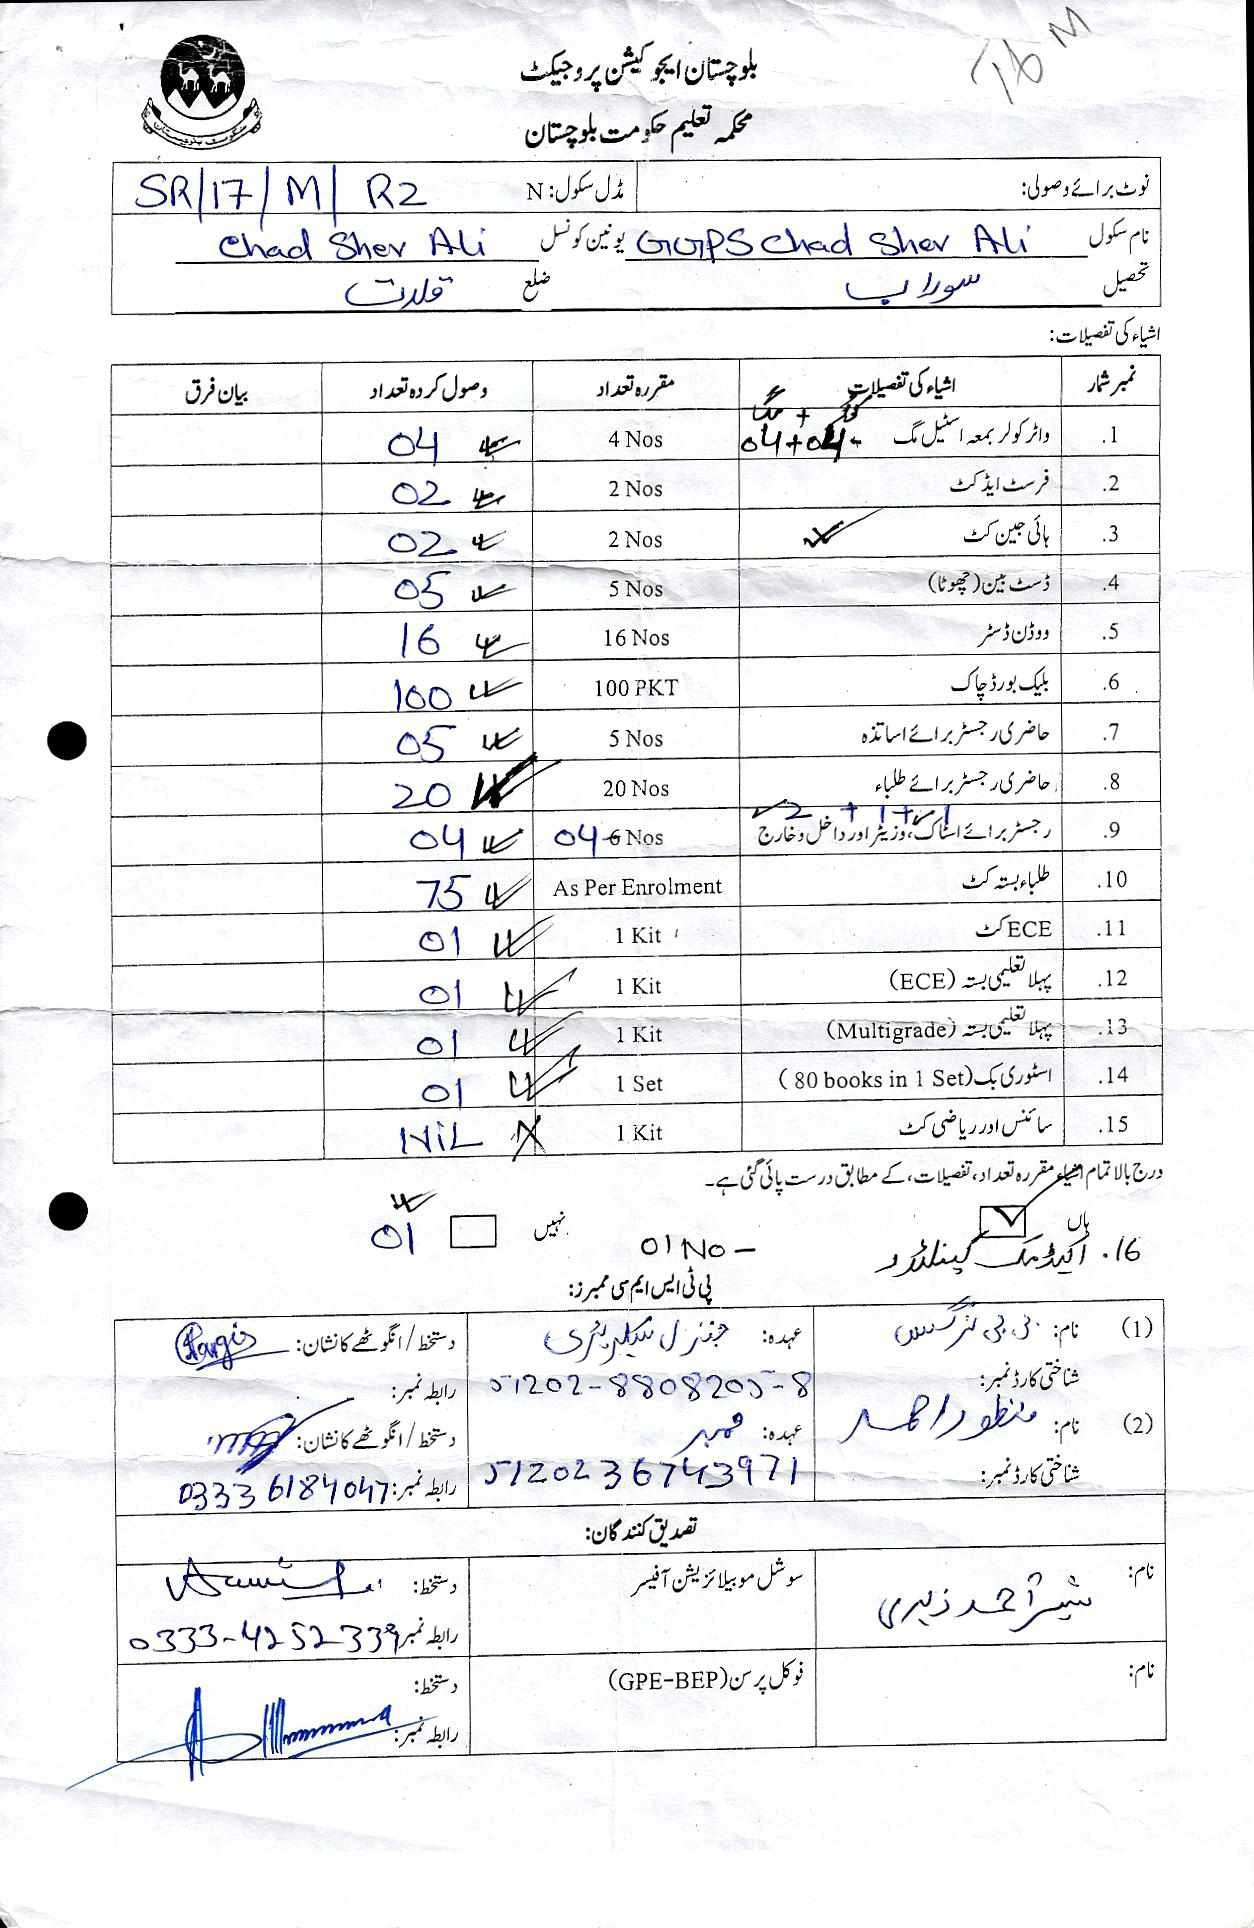 TBM
بلوچستان ایجوکیشن پروجیکٹ
محکمہ تعلیم حکومت بلوچستان
نوٹ برائے وصولی: مڈل سکول: N SR/17/M/ R2
نام سکول GGPS Chad Sher Ali یونین کونسل Chad Sher Ali
تحصیل سوراب ضلع قلات
اشیاء کی تفصیلات:
نمبر شمار اشیاء کی تفصیلات مقررہ تعداد وصول کردہ تعداد بیان فرق
کولر + مگ
1. واٹر کولر بمعہ اسٹیل مگ 04+04- 4 Nos 04
2. فرسٹ ایڈ کٹ 2 Nos 02
3. ہائی جین کٹ 2 Nos 02
4. ڈسٹ بین (چھوٹا) 5 Nos 05
5. ووڈن ڈسٹر 16 Nos 16
6. بلیک بورڈ چاک 100 PKT 100
7. حاضری رجسٹر برائے اساتذہ 5 Nos 05
8. حاضری رجسٹر برائے طلباء 20 Nos 20
2 + 1 + 1
9. رجسٹر برائے اسٹاک، وزیٹر اور داخل و خارج 04 6 Nos 04
10. طلباء بستہ کٹ As Per Enrolment 75
11. ECE کٹ 1 Kit 01
12. پہلا تعلیمی بستہ (ECE) 1 Kit 01
13. پہلا تعلیمی بستہ (Multigrade) 1 Kit 01
14. اسٹوری بک (80 books in 1 Set) 1 Set 01
15. سائنس اور ریاضی کٹ 1 Kit NIL
درج بالا تمام اشیاء مقررہ تعداد، تفصیلات، کے مطابق درست پائی گئی ہے۔
ہاں نہیں
16. اکیڈمک کیلنڈر 01 No - 01
پی ٹی ایس ایم سی ممبرز:
(1) نام: بی بی نرگس عہدہ: جنرل سیکریٹری دستخط/انگوٹھے کا نشان: Nargis
شناختی کارڈ نمبر: 51202-8808205-8 رابطہ نمبر:
(2) نام: منظور احمد عہدہ: ممبر دستخط/انگوٹھے کا نشان:
شناختی کارڈ نمبر: 5120236743971 رابطہ نمبر: 0333 6184047
تصدیق کنندگان:
نام: شیر احمد زہری سوشل موبیلائزیشن آفیسر دستخط:
رابطہ نمبر 0333-4252339
نام: فوکل پرسن (GPE-BEP) دستخط:
رابطہ نمبر: